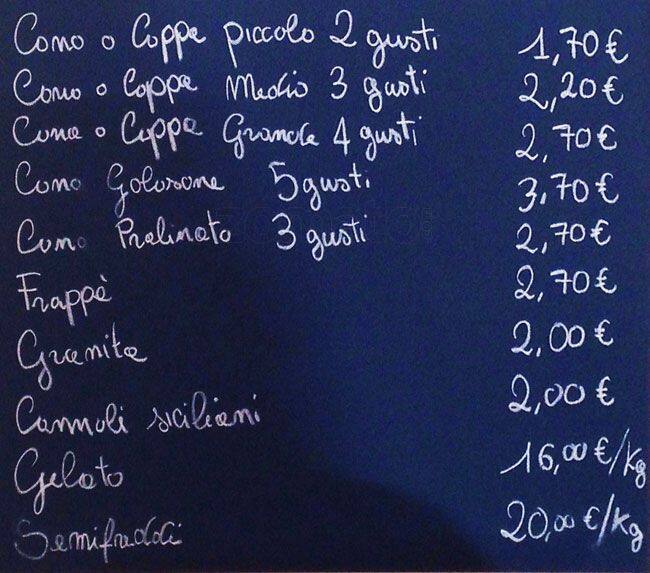 Cono o Coppa piccolo 2 gusti 1,70 €
Cono o Coppa Medio 3 gusti 2,20 €
Cono o Coppa Grande 4 gusti 2,70 €
Cono Golosone 5 gusti 3,70 €
Cono Pralinato 3 gusti 2,70 €
Frappè 2,70 €
Granita 2,00 €
Cannoli siciliani 2,00 €
Gelato 16,00 €/kg
Semifreddi 20,00 €/kg